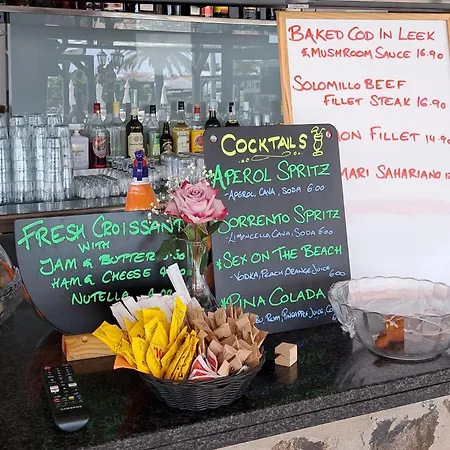 BAKED COD IN LEEK
& MUSHROOM SAUCE 16.90
SOLOMILLO BEEF
FILLET STEAK 16.90
FILLET 14.90
SAHARIANO
COCKTAILS
APEROL SPRITZ
APEROL, CAVA, SODA 6.00
SORRENTO SPRITZ
LIMONCELLO, CAVA, SODA. 6.00
SEX ON THE BEACH
VODKA, PEACH, ORANGE JUICE
PINA COLADA
RUM, PINEAPPLE JUICE,
FRESH CROISSANT
WITH
JAM & BUTTER
HAM & CHEESE
NUTELLA